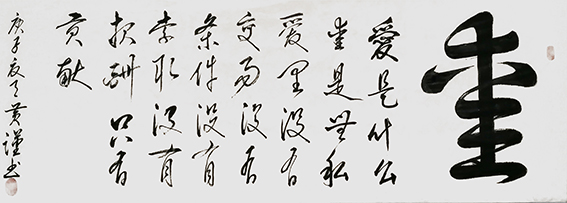 爱
愛是什么
爱是無私
愛里没有
交易没有
条件没有
索取没有
报酬只有
贡献
庚子夏天黄谨书